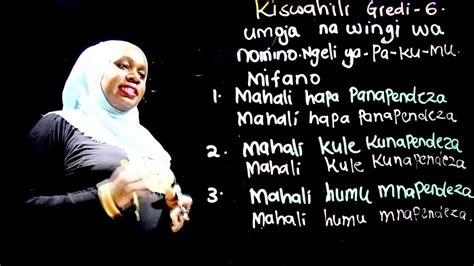 Kiswahili Gredi-6
umoja na wingi wa
nomino. Ngeli ya-Pa-ku-mu
Mifano
1. Mahali hapa Panapendeza
Mahali hapa Panapendeza
2. Mahali Kule Kunapendeza
Mahali Kule Kunapendeza
3. Mahali humu mnapendeza
Mahali humu mnapendeza.